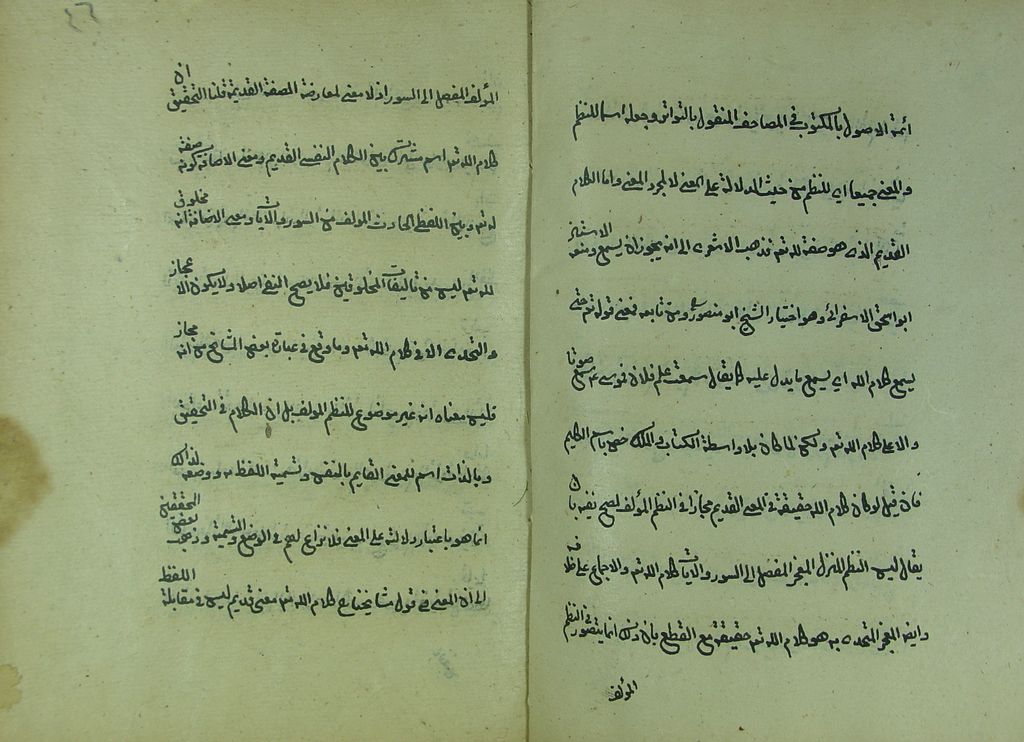 ائمة الاصول بالمكتوب في المصاحف المنقول بالتواتر وجعلوه اسما للنظم
والمعنى جميعا اي للنظم من حيث الدلالة على المعنى لا لمجرد المعنى واما الكلام
القديم الذى هو صفة لله تعه فذهب الاشعرى الى انه يجوز ان يسمع ومنعه الاستاذ
ابو اسحق الاسفرائى وهو اختيار الشيخ ابو منصور ره ومن تابعه فمعنى قوله تع حتى
يسمع كلام الله اي يسمع ما يدل عليه كما يقال سمعت علم فلان فموسى عم سمع صوتا
دالا على كلام الله تعه ولكن لما كان بلا واسطة الكتاب والملك خص باسم الكليم
فان قيل لو كان كلام الله حقيقة في المعنى القديم مجازا في النظم المؤلف لصح نفيه بان
يقال ليس النظم المنزل المعجز المفصل الى السور والايات كلام الله تعه والاجماع على خلافه
وايضا المعجز المتحدى به هو كلام الله تعه حقيقة مع القطع بان ذلك انما يتصور في النظم
المؤلف
٤٦
المؤلف المفصل الى السور اذ لا معنى لمعارضة الصفة القديمة قلنا التحقيق ان
كلام الله تعه اسم مشترك بين الكلام النفسى القديم ومعنى الاضافة كونه صفة
له تعه وبين اللفظى الحادث المؤلف من السور والايات ومعنى الاضافة انه مخلوق
لله تعه ليس من تأليفات المخلوقين فلا يصح النفى اصلا ولا يكون الاعجاز
والتحدى الا في كلام الله تعه وما وقع في عبارة بعض المشايخ من انه مجاز
فليس معناه انه غير موضوع للنظم المؤلف بل ان الكلام في التحقيق
وبالذات اسم للمعنى القايم بالنفس وتسمية اللفظ به ووضعه لذلك
انما هو باعتبار دلالته على المعنى فلا نزاع لهم في الوضع والتسمية وذهب بعض المحققين
الى ان المعنى في قول مشايخنا ع كلام الله تعه معنى قديم ليس في مقابلة اللفظ